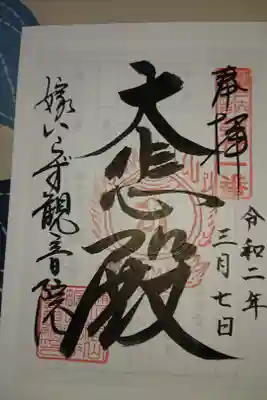 奉拝
令和二年
三月七日
大悲殿
嫁いらず観音院